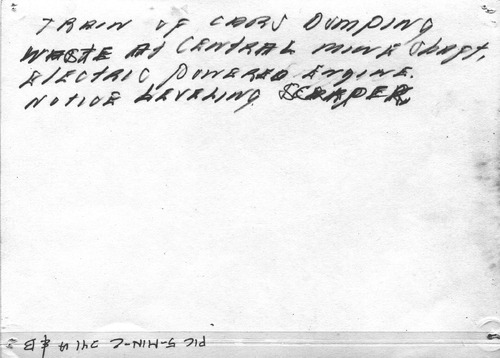 TRAIN OF CARS DUMPING
WASTE At CENTRAL MINE Shaft,
ELECTRIC POWERED ENGINE.
NOTICE LEVELING SCRAPER
PIC 5-MIN-C 241 A & B